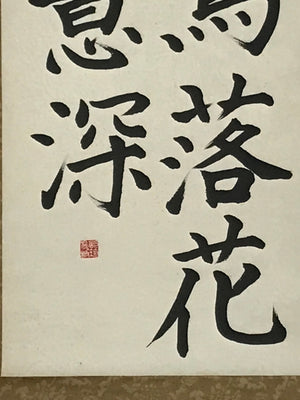 鳥落花
意深